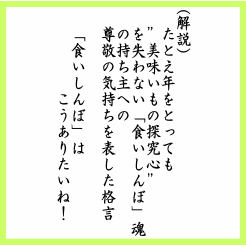 (解説)
たとえ年をとっても
”美味いもの探究心”
を失わない「食いしんぼ」魂
の持ち主への
尊敬の気持ちを表した格言
「食いしんぼ」は
こうありたいね!